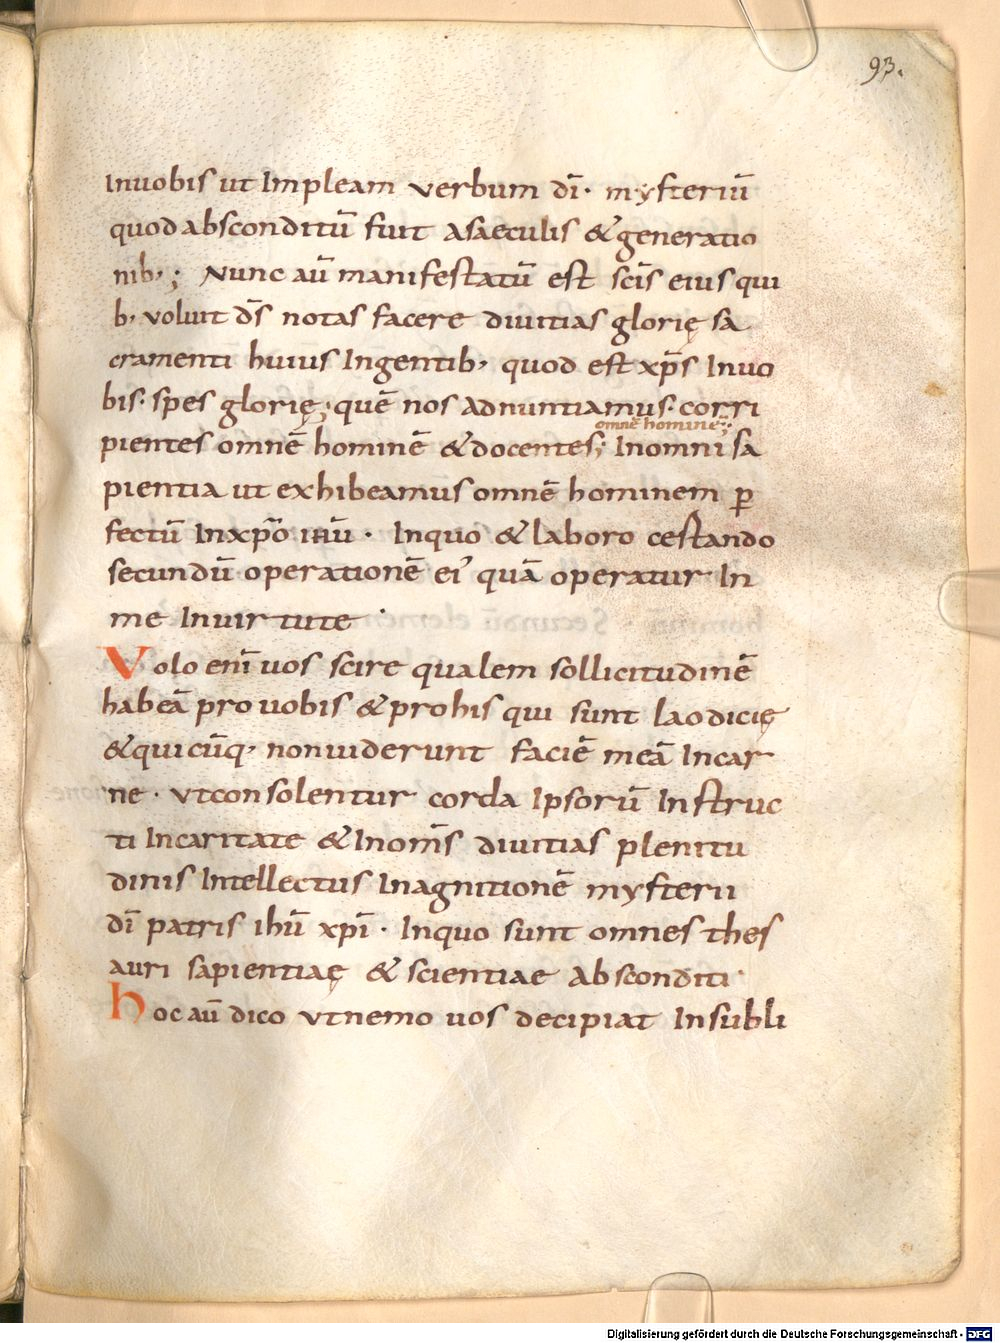 93.
Inuobis ut Impleam verbum dī· mysteriū
quod absconditū fuit asaeculis &generatio
nib,; Nunc aū manifestatū est scīs eius qui
b, voluit ds̄ notas facere diuitias glorię sa
cramenti huius Ingentib, quod est xps̄ Inuo
bis· spes glorię; quē nos adnuntiamus· corri
omnē hominē;
pientes omnē hominē &docentes; Inomni sa
pientia ut exhibeamus omnē hominem ꝑ
fectū Inxp̄o ihū · Inquo & laboro certando
secundū operationē ei' quā operatur In
me Inuirtute ·
Volo enī uos scire qualem sollicitudinē
habeā pro uobis &prohis qui sunt laodicię
&quicūq, nonuiderunt faciē meā Incar
ne · vtconsolentur corda Ipsorū Instruc
ti Incaritate &Inom̄s diuitias plenitu
dinis Intellectus Inagnitionē mysterii
dī patris ihū xpī · Inquo sunt omnes thes
auri sapientiaę & scientiae absconditi·
hoc aū dico vtnemo uos decipiat Insubli
Digitalisierung gefördert durch die Deutsche Forschungsgemeinschaft - DFG